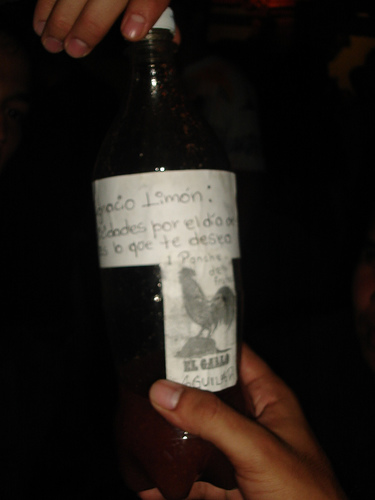 nacio Limón:
dades por el día de
s lo que te desea
Ponche
del
EL GALLO
AGUILAR